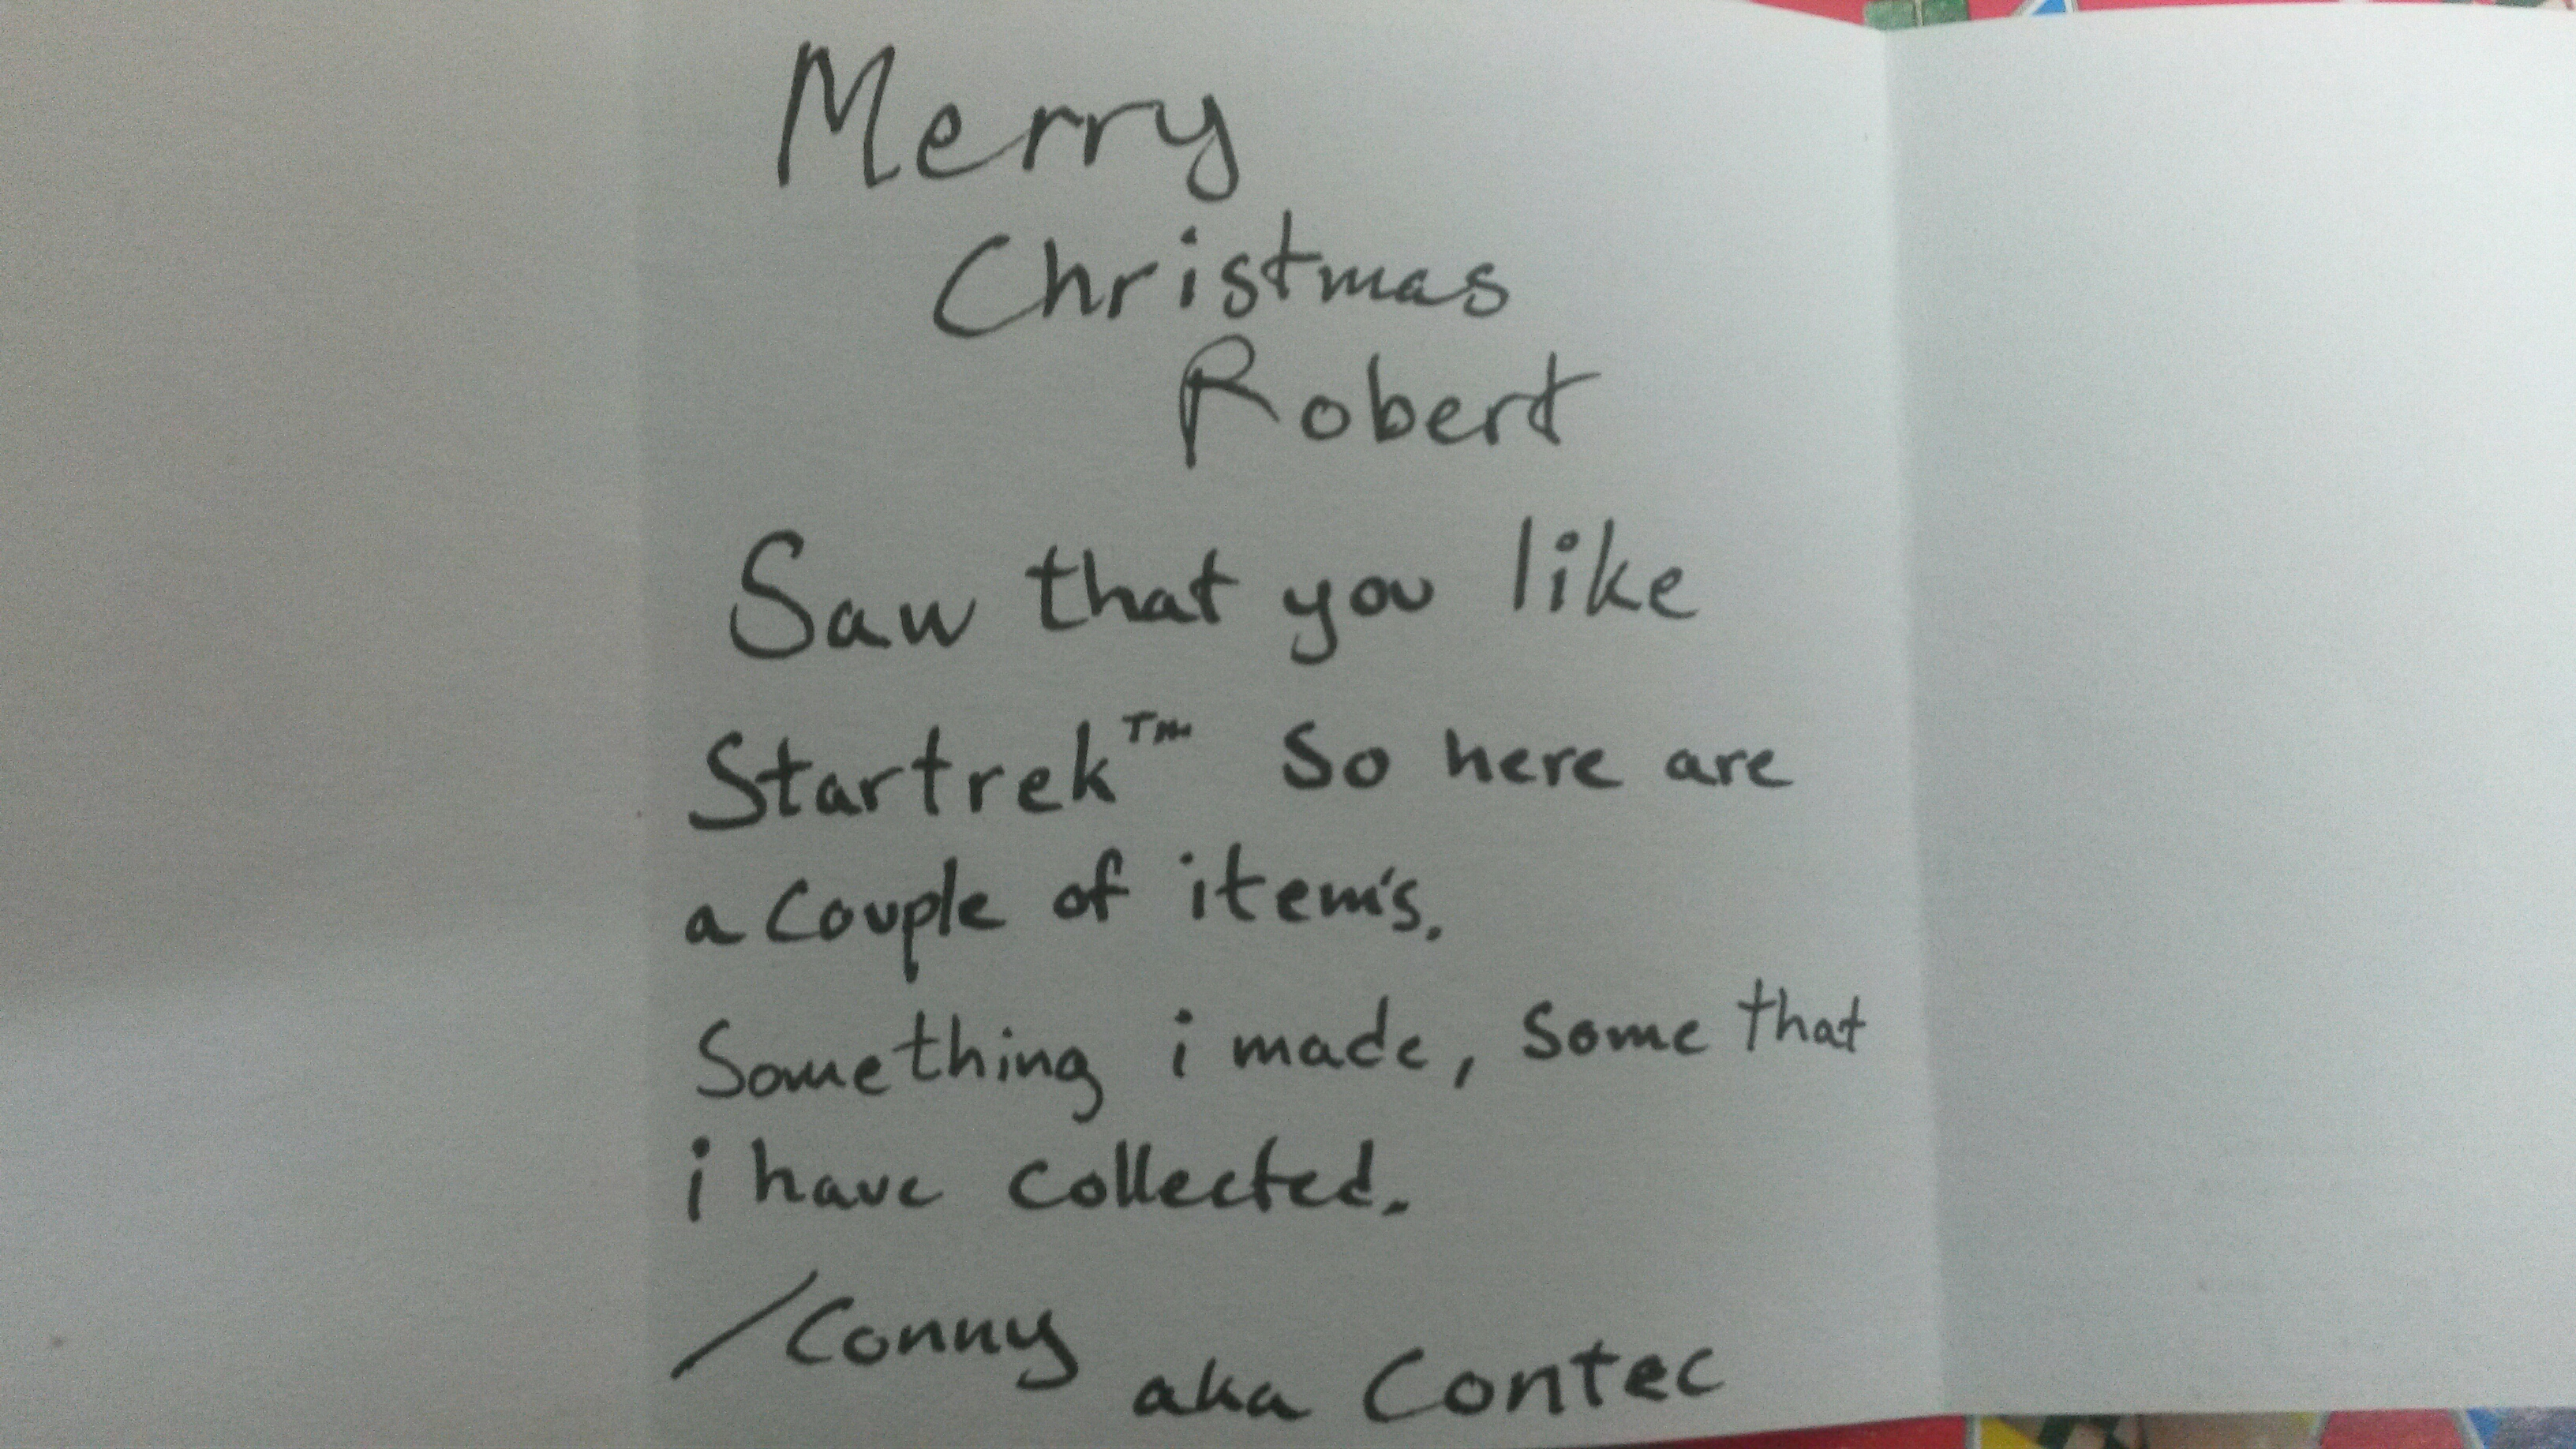 Merry
Christmas
Robert
Saw that you like
Startrek™ So here are
a couple of item's.
Something i made, Some that
i have collected.
/Conny
aka Contec